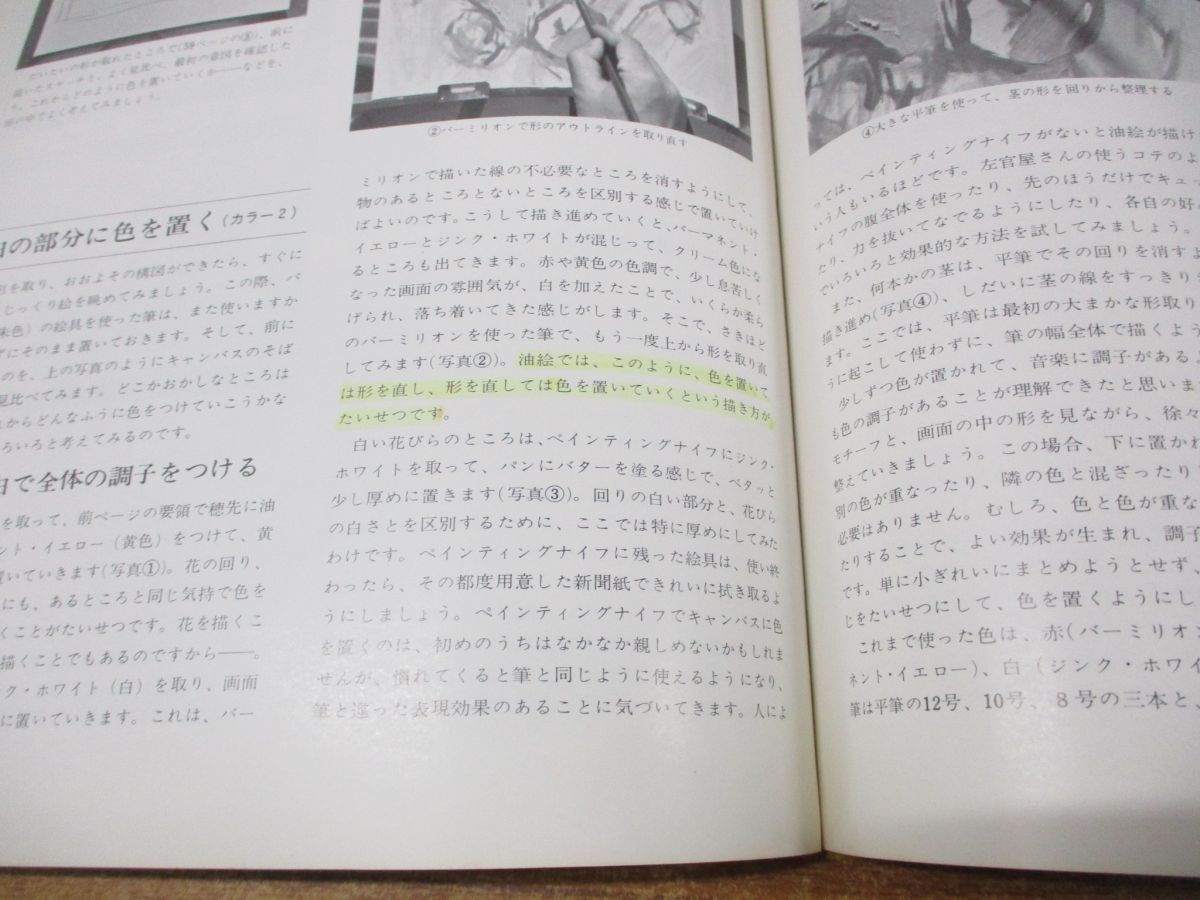 だいたいの形が取れたところで(59ページの③)、前に
描いたスケッチと、よく見比べ、最初の意図を確認した
り、これからどのように色を置いていくか——などを、
頭の中でよく考えてみましょう。
白の部分に色を置く(カラー2)
形を取り、おおよその構図ができたら、すぐに
じっくり絵を眺めてみましょう。この際、バ
朱色)の絵具を使った筆は、また使いますか
ずにそのまま置いておきます。そして、前に
のを、上の写真のようにキャンバスのそば
見比べてみます。どこかおかしなところは
れからどんなふうに色をつけていこうかな
ろいろと考えてみるのです。
白で全体の調子をつける
を取って、前ページの要領で穂先に油
ント・イエロー(黄色)をつけて、黄
置いていきます(写真①)。花の回り、
にも、あるところと同じ気持で色を
くことがたいせつです。花を描くこ
描くことでもあるのですから——。
ク・ホワイト(白)を取り、画面
に置いていきます。これは、バー
②バーミリオンで形のアウトラインを取り直す
ミリオンで描いた線の不必要なところを消すようにして、
物のあるところとないところを区別する感じで置いていけ
ばよいのです。こうして描き進めていくと、パーマネント・
イエローとジンク・ホワイトが混じって、クリーム色にな
るところも出てきます。赤や黄色の色調で、少し息苦しく
なった画面の雰囲気が、白を加えたことで、いくらか柔ら
げられ、落ち着いてきた感じがします。そこで、さきほど
のバーミリオンを使った筆で、もう一度上から形を取り直
してみます(写真②)。油絵では、このように、色を置いて
は形を直し、形を直しては色を置いていくという描き方が、
たいせつです。
白い花びらのところは、ペインティングナイフにジンク・
ホワイトを取って、パンにバターを塗る感じで、ベタッと
少し厚めに置きます(写真③)。回りの白い部分と、花びら
の白さとを区別するために、ここでは特に厚めにしてみた
わけです。ペインティングナイフに残った絵具は、使い終
わったら、その都度用意した新聞紙できれいに拭き取るよ
うにしましょう。ペインティングナイフでキャンバスに色
を置くのは、初めのうちはなかなか親しめないかもしれま
せんが、慣れてくると筆と同じように使えるようになり、
筆と違った表現効果のあることに気づいてきます。人によ
④大きな平筆を使って、茎の形を回りから整理する
っては、ペインティングナイフがないと油絵が描け
いう人もいるほどです。左官屋さんの使うコテのよ
ナイフの腹全体を使ったり、先のほうだけでキュッ
たり、力を抜いてなでるようにしたり、各自の好み
でいろいろと効果的な方法を試してみましょう。
また、何本かの茎は、平筆でその回りを消すよ
描き進め(写真④)、しだいに茎の線をすっきり
ます。ここでは、平筆は最初の大まかな形取り
うに起こして使わずに、筆の幅全体で描くよう
少しずつ色が置かれて、音楽に調子がある
も色の調子があることが理解できたと思いま
モチーフと、画面の中の形を見ながら、徐々
整えていきましょう。この場合、下に置かれ
別の色が重なったり、隣の色と混ざったり
必要はありません。むしろ、色と色が重な
たりすることで、よい効果が生まれ、調子
です。単に小ぎれいにまとめようとせず、
じをたいせつにして、色を置くようにし
これまで使った色は、赤(バーミリオ
ネント・イエロー)、白(ジンク・ホワイ
筆は平筆の12号、10号、8号の三本と、